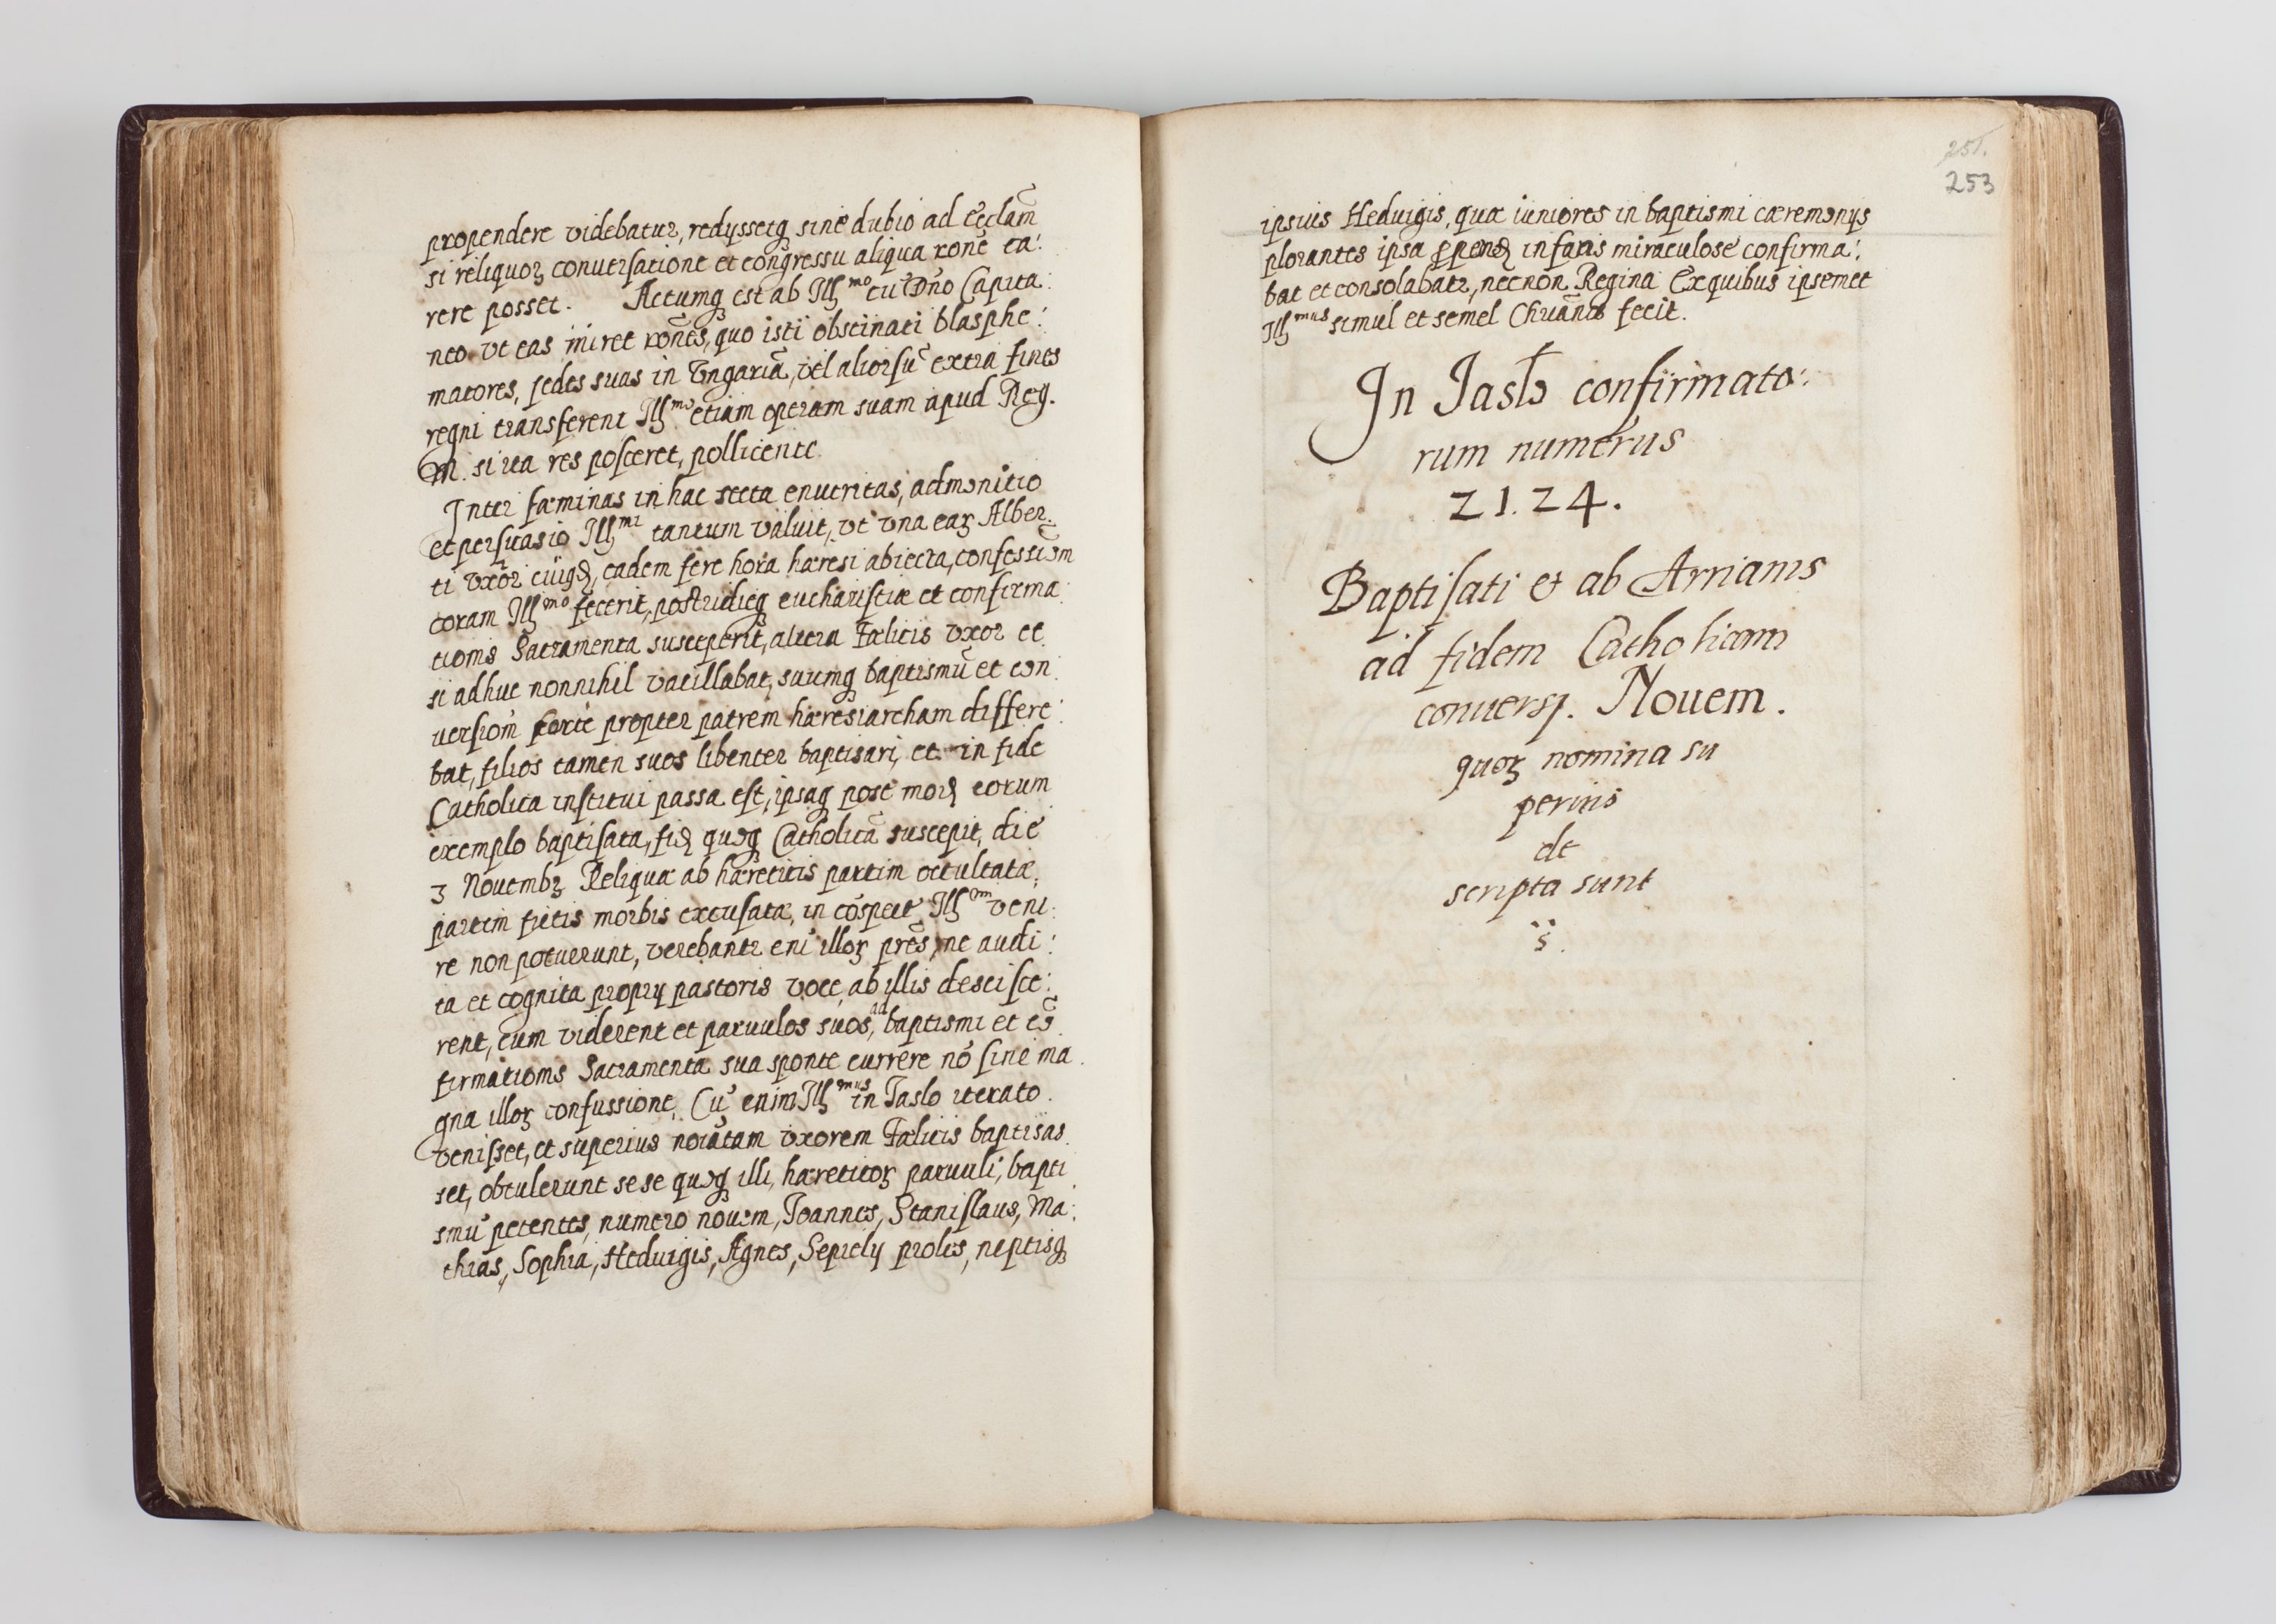 propendere videbatur, redijsseitꝗ sine dubio ad Ecclam̃
si reliquoꝝ conuersatione et congressu aliqua ronē ca:
rere posset. Actumꝗ est ab Illᵐᵒ cū Dn̄o Capita:
neo vt eas iniret ronēs, quo isti obstinati blasphe:
matores, sedes suas in Vngariā, vel aliorsū extra fines
regni transferent Illᵐᵒ etiam operam suam apud Reg.
M. si ita res posceret, pollicente
Inter fæminas in hac secta enutritas, admonitio
et persuasio Illᵐⁱ tantum valuit, vt vna eaꝝ Alber:
ti vxor eadem fere hora hæresi abiecta, confessiōm
coram Illᵐᵒ fecerit, postridieꝗ eucharistiæ et confirma:
tionis Sacramenta susceperit, altera Fælicis vxor et
si adhuc nonnihil vacillabat, suumꝗ baptismū et con:
uersiom forte propter patrem hæresiarcham differe:
bat, filios tamen suos libenter baptisari, et in fide
Catholica institui passa est, ipsaꝗ post eorum
exemplo baptisata, quoꝗ Catholicā suscepit, die
3 Nouembꝫ Reliquæ ab hæreticis partim occultatæ,
partim fictis morbis excusatæ, in cōspect Illᵐ veni:
re non potuerunt, verebantr enī illoꝝ prēs, ne audi:
ta et cognita proprij pastoris voce, ab illis descisce:
rent, cum viderent et paruulos suos, ad baptismi et cō
firmationis Sacramenta sua sponte currere nō sine ma
gna illoꝝ confussione, Cū enim Illᵐᵘˢ in Jaslo iterato
venisset, et superius noīatam vxorem Fælicis baptisas
set, obtulerunt sese quoꝗ illi, hæreticoꝝ paruuli, bapti
smū petentes, numero nouem, Joannes, Stanislaus, Ma:
thias, Sophia, Heduigis, Agnes, prolis, neptisꝗ
251.
253
ipsius Heduigis, quæ iuniores in baptismi cæremonijs
plorantes ipsa infans miraculose confirma:
bat et consolabatr, necnon Regina Ex quibus ipsemet
Illᵐᵘˢ simul et semel fecit.
In Jaslo confirmato:
rum numerus
2124.
Baptisati & ab Arrianis
ad fidem Catholicam
conuersj. Nouem.
quoꝝ nomina su
perius
de
scripta sunt